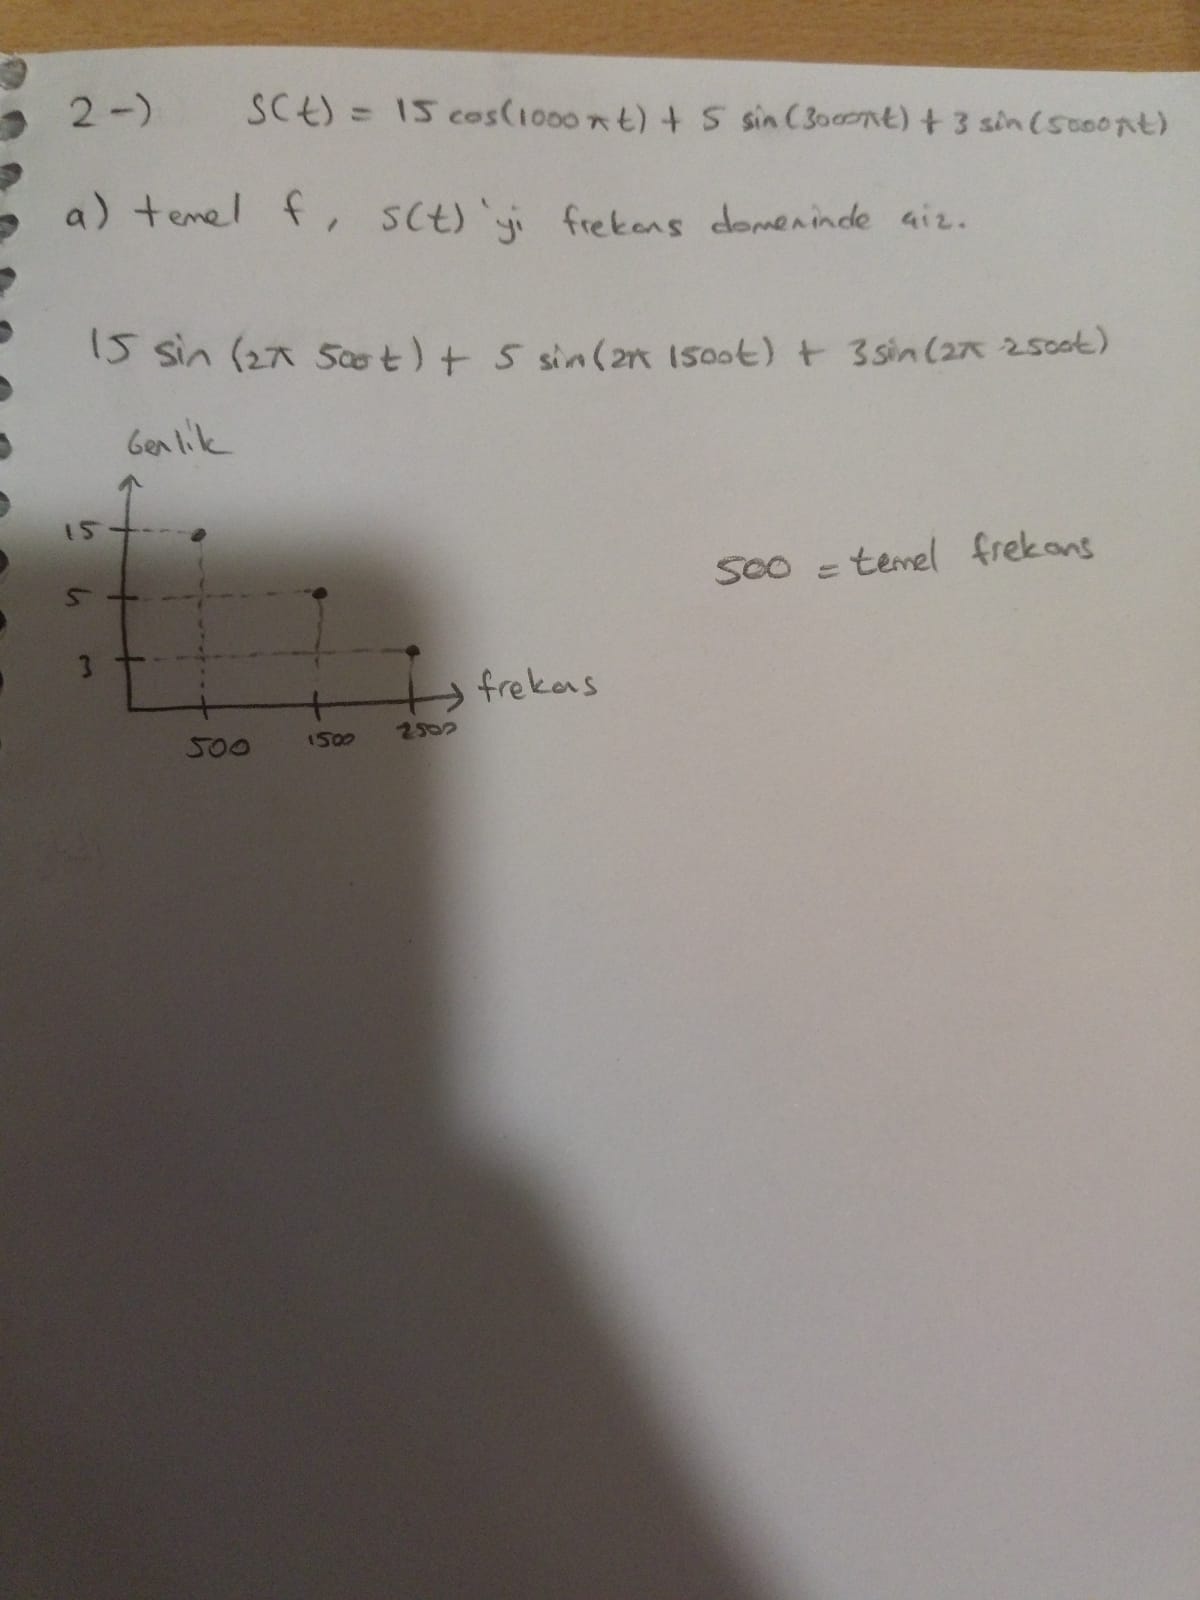 2-) S(t) = 15 cos(1000πt) + 5 sin(3000πt) + 3 sin(5000πt)
a) temel f, s(t)'yi frekans domeninde çiz.
15 sin (2π 500t) + 5 sin(2π 1500t) + 3sin(2π 2500t)
Genlik
15
500 = temel frekans
5
3
frekans
500 1500 2500